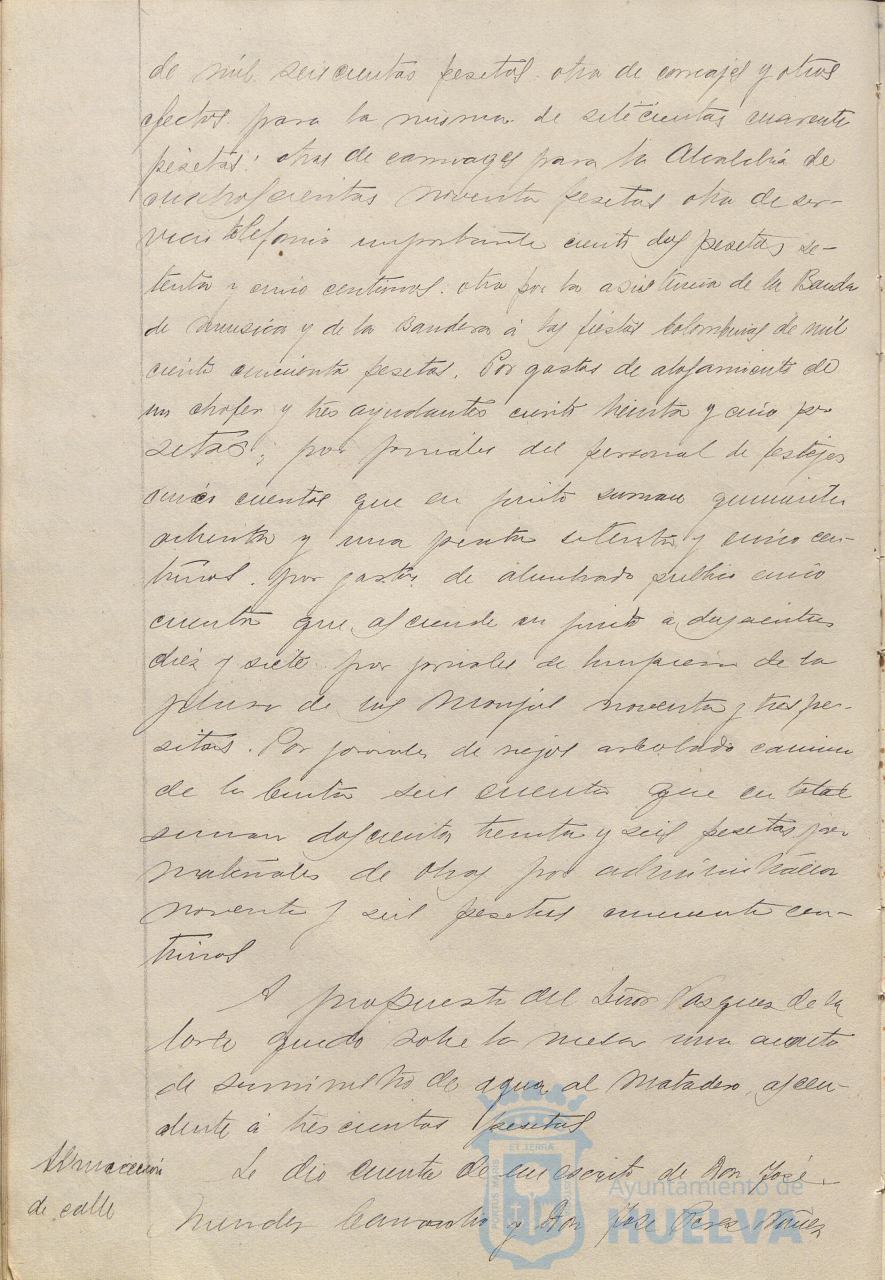 de mil seiscientas pesetas. otra de correajes y otros
efectos para la misma de setecientas cuarenta
pesetas: otras de carruages para la Alcaldía de
cuatroscientas noventa pesetas otra de ser-
vicio telefonico importante ciento dos pesetas se-
tenta y cinco centimos. otra por la asistencia de la Banda
de musica y de la Bandera á las fiestas Colombinas de mil
ciento cincuenta pesetas. Por gastos de alojamiento de
un chofer y tres ayudantes ciento treinta y cinco pe-
setas; por jornales del personal de festejos
cinco cuentas que en junto suman quinientas
ochenta y una peseta setenta y cinco cen-
timos. por gastos de alumbrado publico cinco
cuenta que asciende en junto a doscientas
diez y siete por jornales de limpieza de la
de las Monjas noventa y tres pe-
setas. Por jornales de riegos arbolado camino
de la Cinta seis cuenta que en total
suman doscientas treinta y seis pesetas por
materiales de obras por administracion
noventa y seis pesetas cincuenta cen-
timos
A propuesta del Señor Vasquez de la
Torre quedó sobre la mesa una cuenta
de suministro de agua al Matadero, ascen-
dente á trescientas pesetas
de calle
Se dio cuenta de un escrito de Don José
Mendez Camacho y Don Jose Perez Nuñez
ET TERRA
PORTUS MARIS
Ayuntamiento de
HUELVA